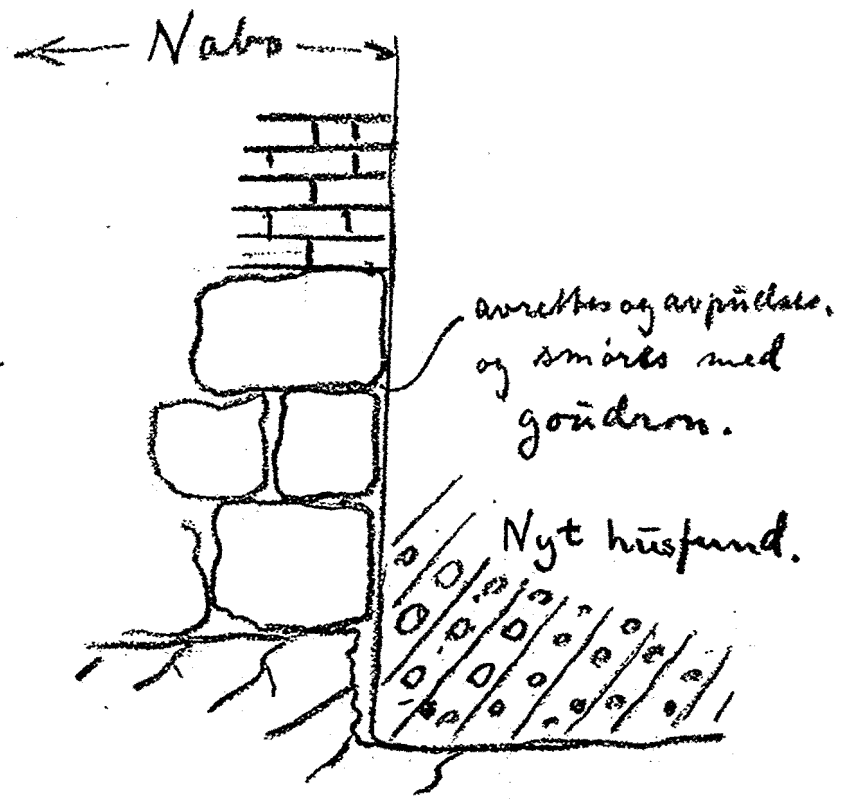 Nabo
avrettes og avpüdses.
og smøres med
goüdron.
Nyt hüsfund.